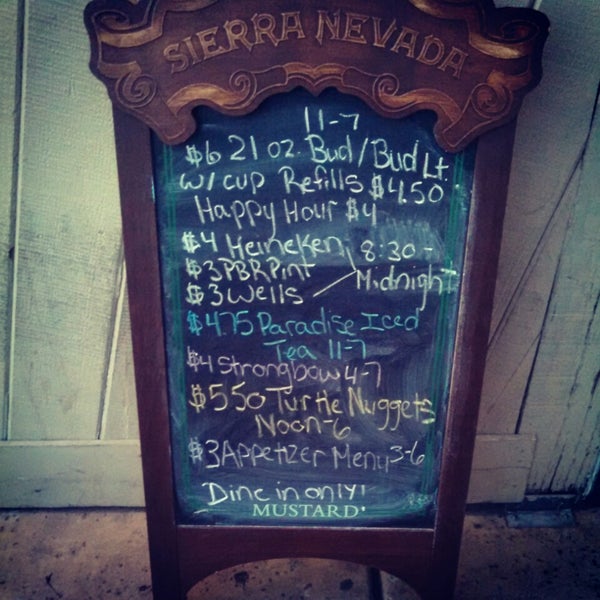 SIERRA NEVADA
11-7
$6 21 oz. Bud/Bud Lt.
w/ cup Refills $4.50
Happy Hour $4
$4 Heineken 8:30 -
$3 PBR Pint Midnight
$3 Wells
$4.75 Paradise Iced
Tea 11-7
$4 Strongbow 4-7
$5.50 Turtle Nuggets
Noon-6
$3 Appetizer Menu 3-6
Dine in only!
MUSTARD'